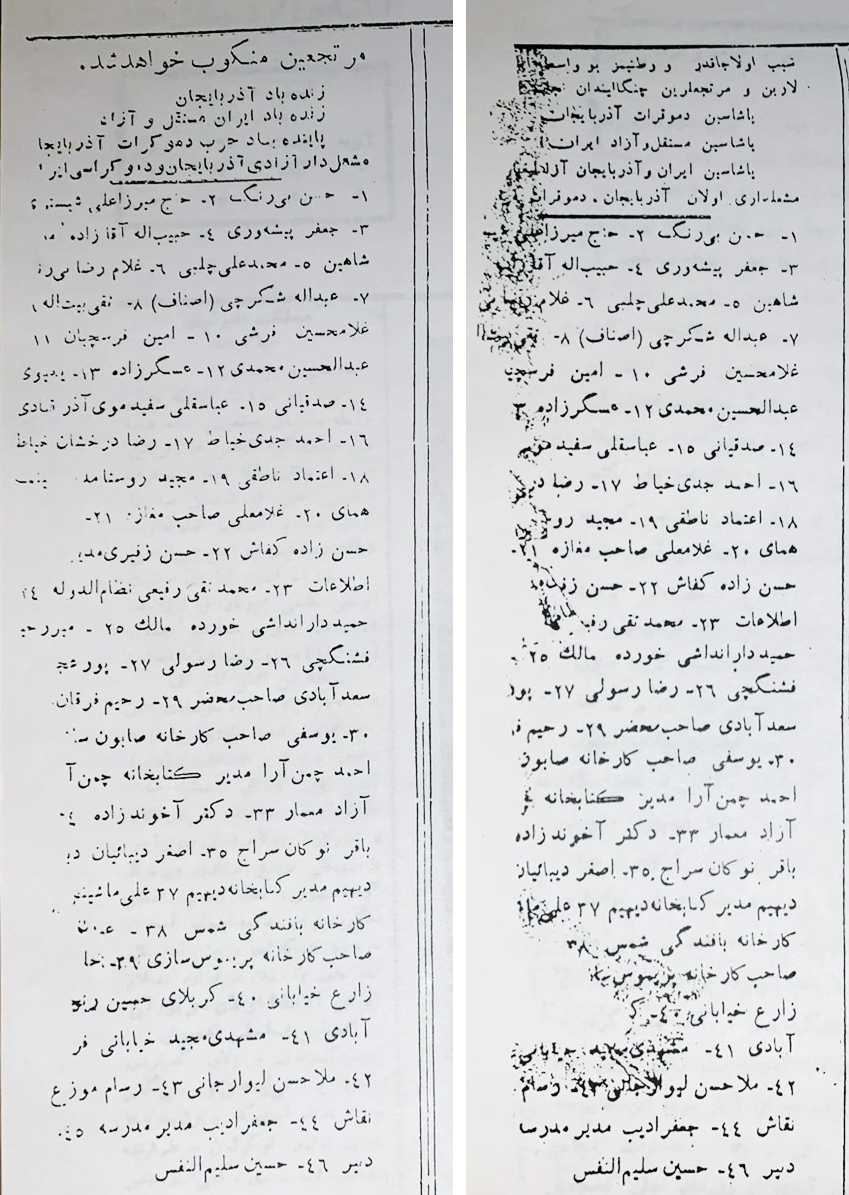 مرتجعین منکوب خواهدشد.
زنده باد آذربایجان
زنده باد ایران مستقل و آزاد
پاینده باد حزب دموکرات آذربایجا
مشعل‌دار آزادی آذربایجان‌ودموکراسی‌ایر
۱- حسن بی‌رنگ ۲- حاج میرزاعلی شبستری
۳- جعفر پیشه‌وری ٤- حبیب‌اله آقازاده
شاهین ۵- محمدعلی‌چلبی ۶- غلام رضا
۷- عبداله شکرچی (اصناف) ۸- تقی‌بیت‌اله
غلامحسین فرشی ۱۰- امین فرسچیان ۱۱
عبدالحسین‌محمدی ۱۲- عسگرزاده ۱۳-
۱٤- صدقیانی ۱۵- عباسقلی سفیدموی آذر آبادی
۱۶- احمد جدی‌خیاط ۱۷- رضا درخشان خیاط
۱۸- اعتماد ناطقی ۱۹- مجید روستا
همای ۲۰- غلامعلی صاحب مغازه ۲۱-
حسن زاده کفاش ۲۲- حسن زفیری‌مدیر
اطلاعات ۲۳- محمدتقی رفیعی نظام‌الدوله ۲٤
حمیددارانداشی خورده مالك ۲۵ - میررحیم
فشنگچی ۲۶- رضا رسولی ۲۷- پور
سعدآبادی صاحب‌محضر ۲۹- رحیم فرقان
۳۰- یوسفی صاحب کارخانه صابون
احمد چمن‌آرا مدیر کتابخانه چمن‌آ
آزاد معمار ۳۳- دکتر آخوندزاده
باقر نوکان سراج ۳۵- اصغر دیبائیان دی
دیهیم مدیر کتابخانه‌دیهیم ۳۷ علی‌ماشینچی
کارخانه بافندگی شمس ۳۸ -
صاحب‌کارخانه پریموس‌سازی ۳۹-
زارع خیابانی ٤۰- کربلای حسین
آبادی ٤۱- مشهدی‌مجید خیابانی فر
٤۲- ملاحسن لیوارجانی ٤۳- رسام موزع
نقاش ٤٤- جعفرادیب مدیرمدرسه ٤۵-
دبیر ٤۶- حسین سلیم‌النفس
نصیب اولاجاقدر و وطنیمز بو واسطه
لارین و مرتجعلرین چنگالیندان
یاشاسین دموقرات آذربایجان
یاشاسین مستقل‌وآزاد ایران
یاشاسین ایران‌وآذربایجان
مشعلداری اولان آذربایجان دموقرات
۱- حسن بی‌رنگ ۲- حاج میرزاعلی
۳- جعفر پیشه‌وری ٤- حبیب‌اله آقا
شاهین ۵- محمدعلی چلبی ۶- غلام
۷- عبداله شکرچی (اصناف) ۸- تقی
غلامحسین فرشی ۱۰- امین فرسچی
عبدالحسین‌محمدی ۱۲- عسگرزاده ۳
۱٤- صدقیانی ۱۵- عباسقلی سفیدموی
۱۶- احمد جدی‌خیاط ۱۷- رضا در
۱۸- اعتماد ناطقی ۱۹- مجید رو
همای ۲۰- غلامعلی صاحب مغازه ۲۱-
حسن زاده کفاش ۲۲- حسن
اطلاعات ۲۳- محمدتقی رفیعی
حمیددارانداشی خورده مالك ۲۵
فشنگچی ۲۶- رضا رسولی ۲۷- پور
سعدآبادی صاحب‌محضر ۲۹- رحیم
۳۰- یوسفی صاحب کارخانه صابون
احمد چمن‌آرا مدیر کتابخانه
آزاد معمار ۳۳- دکتر آخوندزاده
باقر نوکان سراج ۳۵- اصغر دیبائیان
دیهیم مدیر کتابخانه‌دیهیم ۳۷ علی
کارخانه بافندگی شمس ۳۸
صاحب کارخانه پریموس
زارع خیابانی ٤۰-
آبادی ٤۱- مشهدی‌مجید خیابانی
٤۲- ملاحسن لیوارجانی ٤۳- رسام
نقاش ٤٤- جعفرادیب مدیرمدرسه
دبیر ٤۶- حسین سلیم‌النفس